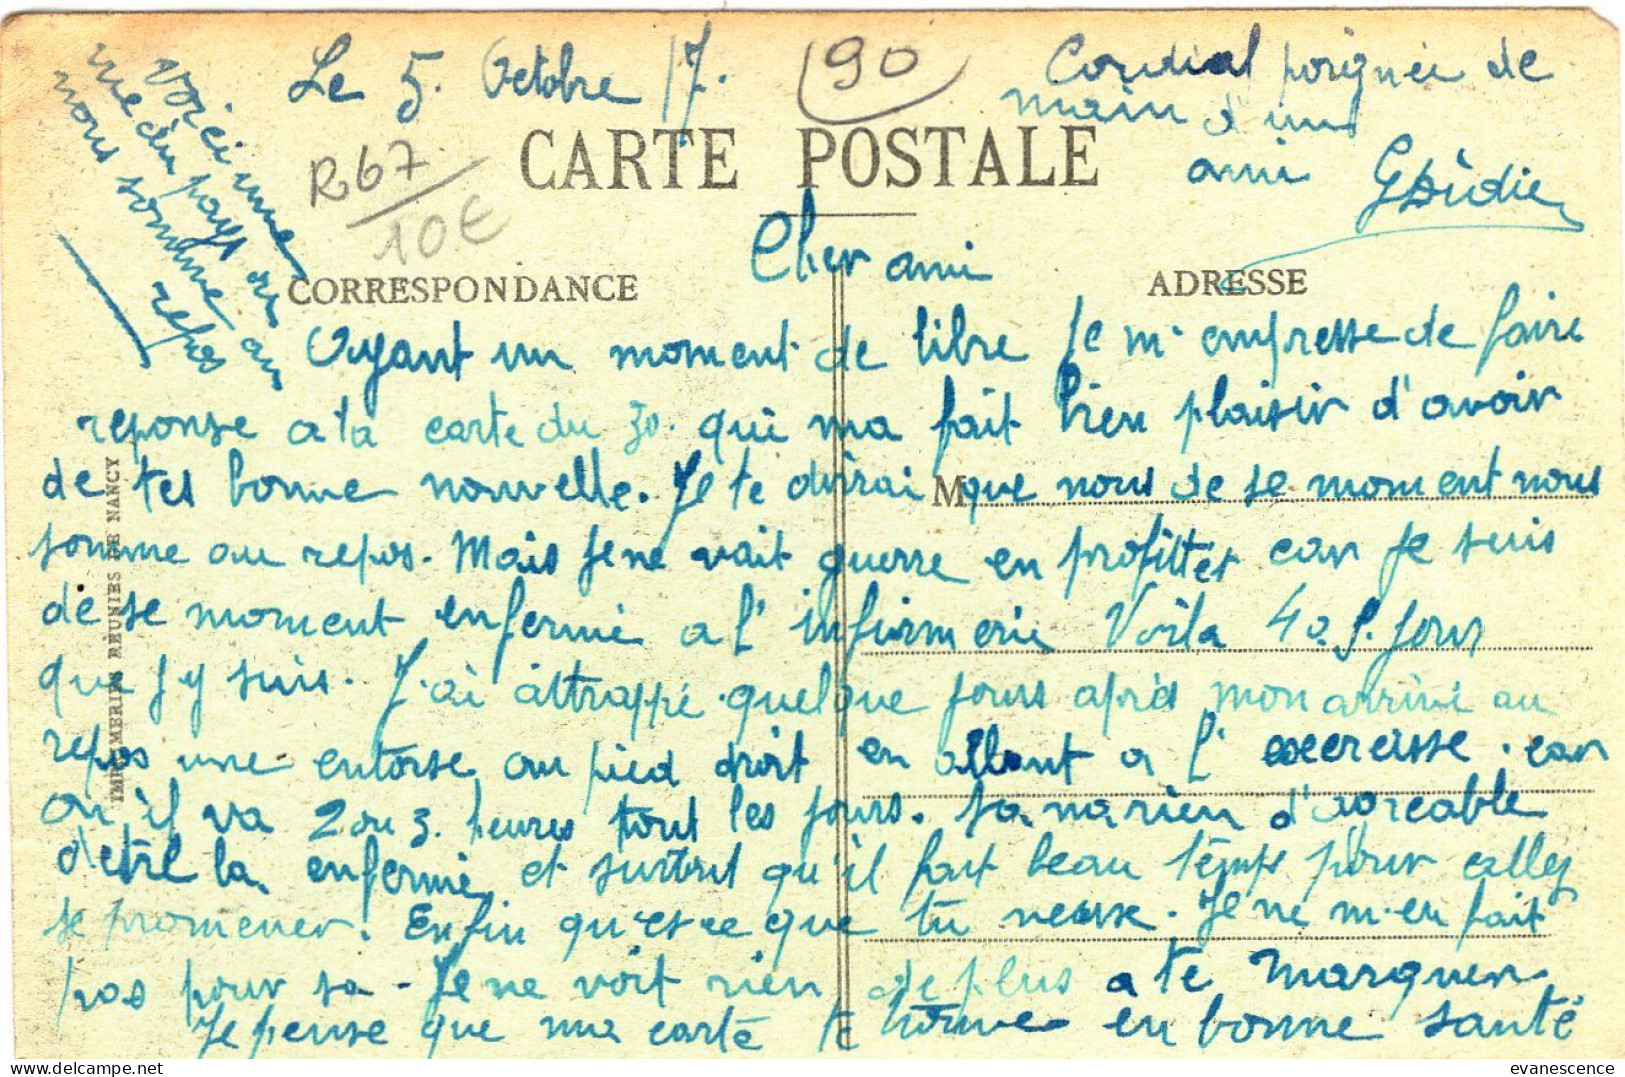 Le 5. Octobre 17.
90
Cordial poignée de
main d'un
ami
GDidie
Voici une
vue du pays ou
nous somme au
repos
R67
10€
CARTE POSTALE
CORRESPONDANCE
ADRESSE
Cher ami
Ayant un moment de libre Je m'empresse de faire
reponse a ta carte du 30. qui ma fait bien plaisir d'avoir
de tes bonne nouvelle. Je te dirai que nous de se moment nous
M
somme au repos. Mais Je ne vait guerre en profitter car Je suis
de se moment enfermé a l'infirmerie Voila 4 a 5. Jour
que J y suis. J'ai attrappé quelque Jours aprés mon arrivé au
repos une entorse au pied droit en allent a l'excercisse. car
on il va 2 ou 3. heures tout les Jours. Sa na rien d'agreable
d'etre la enfermé et surtout qu'il fait beau temps pour alley
se promener. Enfin qu'est ce que tu veusse. Je ne m'en fait
pas pour sa - Je ne voit rien de plus a te marquer
Je pense que ma carte te trouve en bonne santé
IMPRIMERIES REUNIES DE NANCY
evanescence